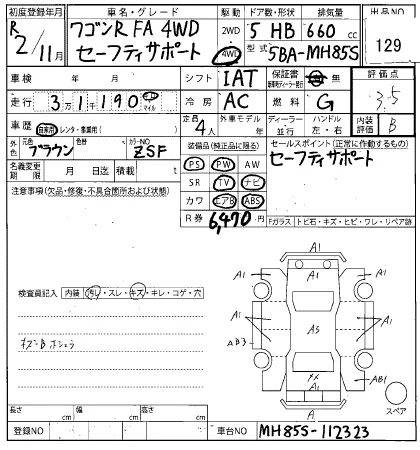 初度登録年月 車名・グレード 駆動 ドア数・形状 排気量 出品NO
R2/11月 ワゴンR FA 4WD 2WD 5 HB 660 cc
セーフティサポート 4WD 型式 5BA-MH85S 129
車検 年 月 シフト IAT 保証書 有 無 評価点
走行 3万1千190 キロ マイル 冷房 AC 燃料 G 3.5
車歴 自家用・レンタ・事業用( ) 定員 4人 外車モデル 年 ディーラー・並行 ハンドル 左・右 内装評価 B
外色 元色 ブラウン 色替 カラーNO ZSF
装備品(純正品に限る) セールスポイント(正常に作動するもの)
名義変更期限 月 日迄 積載 t PS PW AW セーフティサポート
注意事項(欠品・修復・不具合箇所および状態) SR TV ナビ
カワ エアB ABS
R券 6,470円 Fガラス トビ石・キズ・ヒビ・ワレ・リペア跡
A1
A1 A1
検査員記入 内装 汚れ・スレ・キズ・キレ・コゲ・穴
A1 A3 A1
AB3
AB1
A
スペア
長さ cm 幅 cm 高さ cm
登録NO 車台NO MH85S-112323